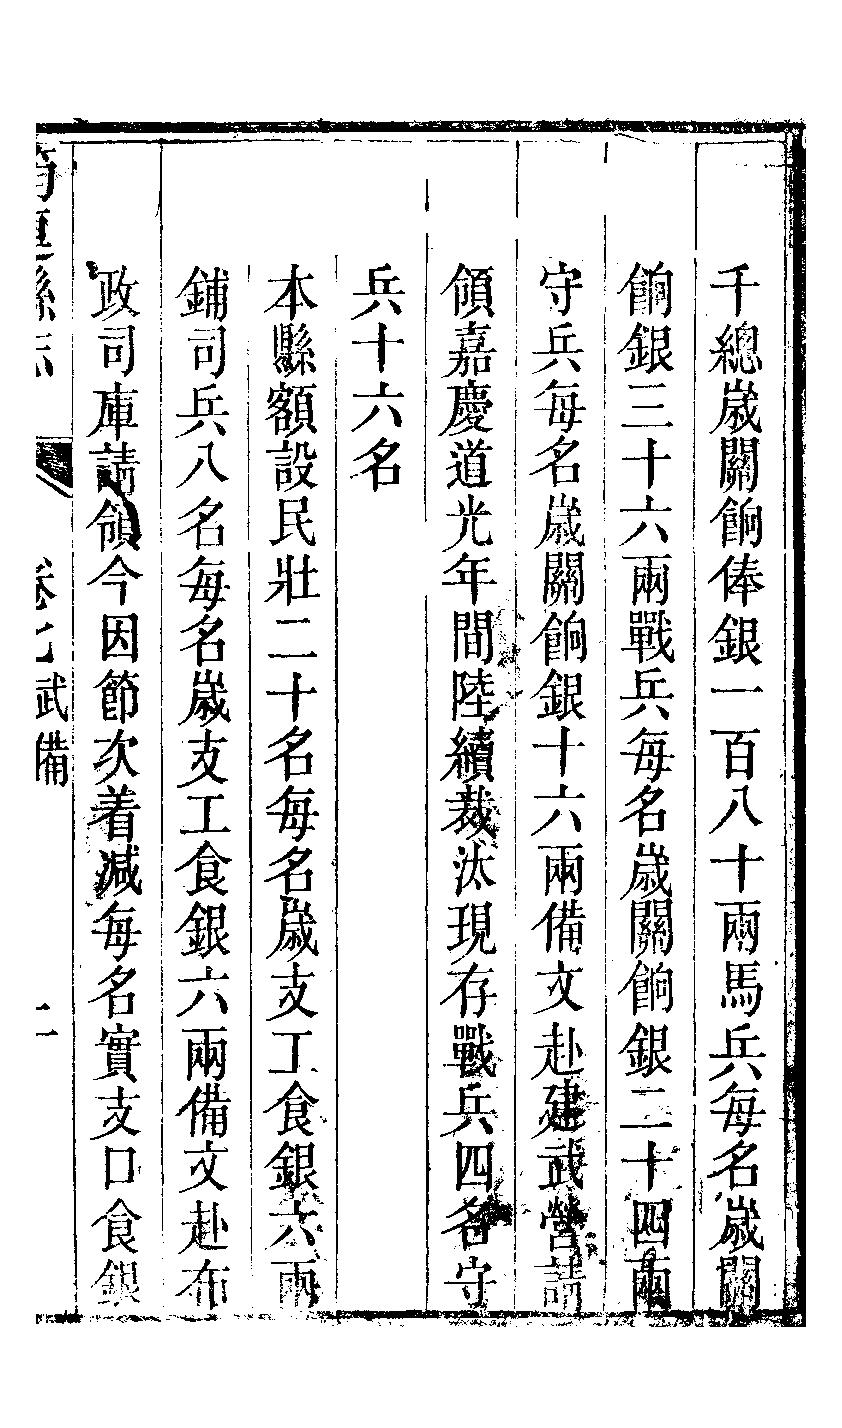 千總歲關餉俸銀一百八十兩馬兵每名歲關
餉銀三十六兩戰兵每名歲關餉銀二十四兩
守兵每名歲關餉銀十六兩備文赴建武營請
領嘉慶道光年間陸續裁汰現存戰兵四名守
兵十六名
本縣額設民壯二十名每名歲支工食銀六兩
鋪司兵八名每名歲支工食銀六兩備文赴布
政司庫請領今因節次着減每名實支口食銀
筠連縣志
卷七武備
二